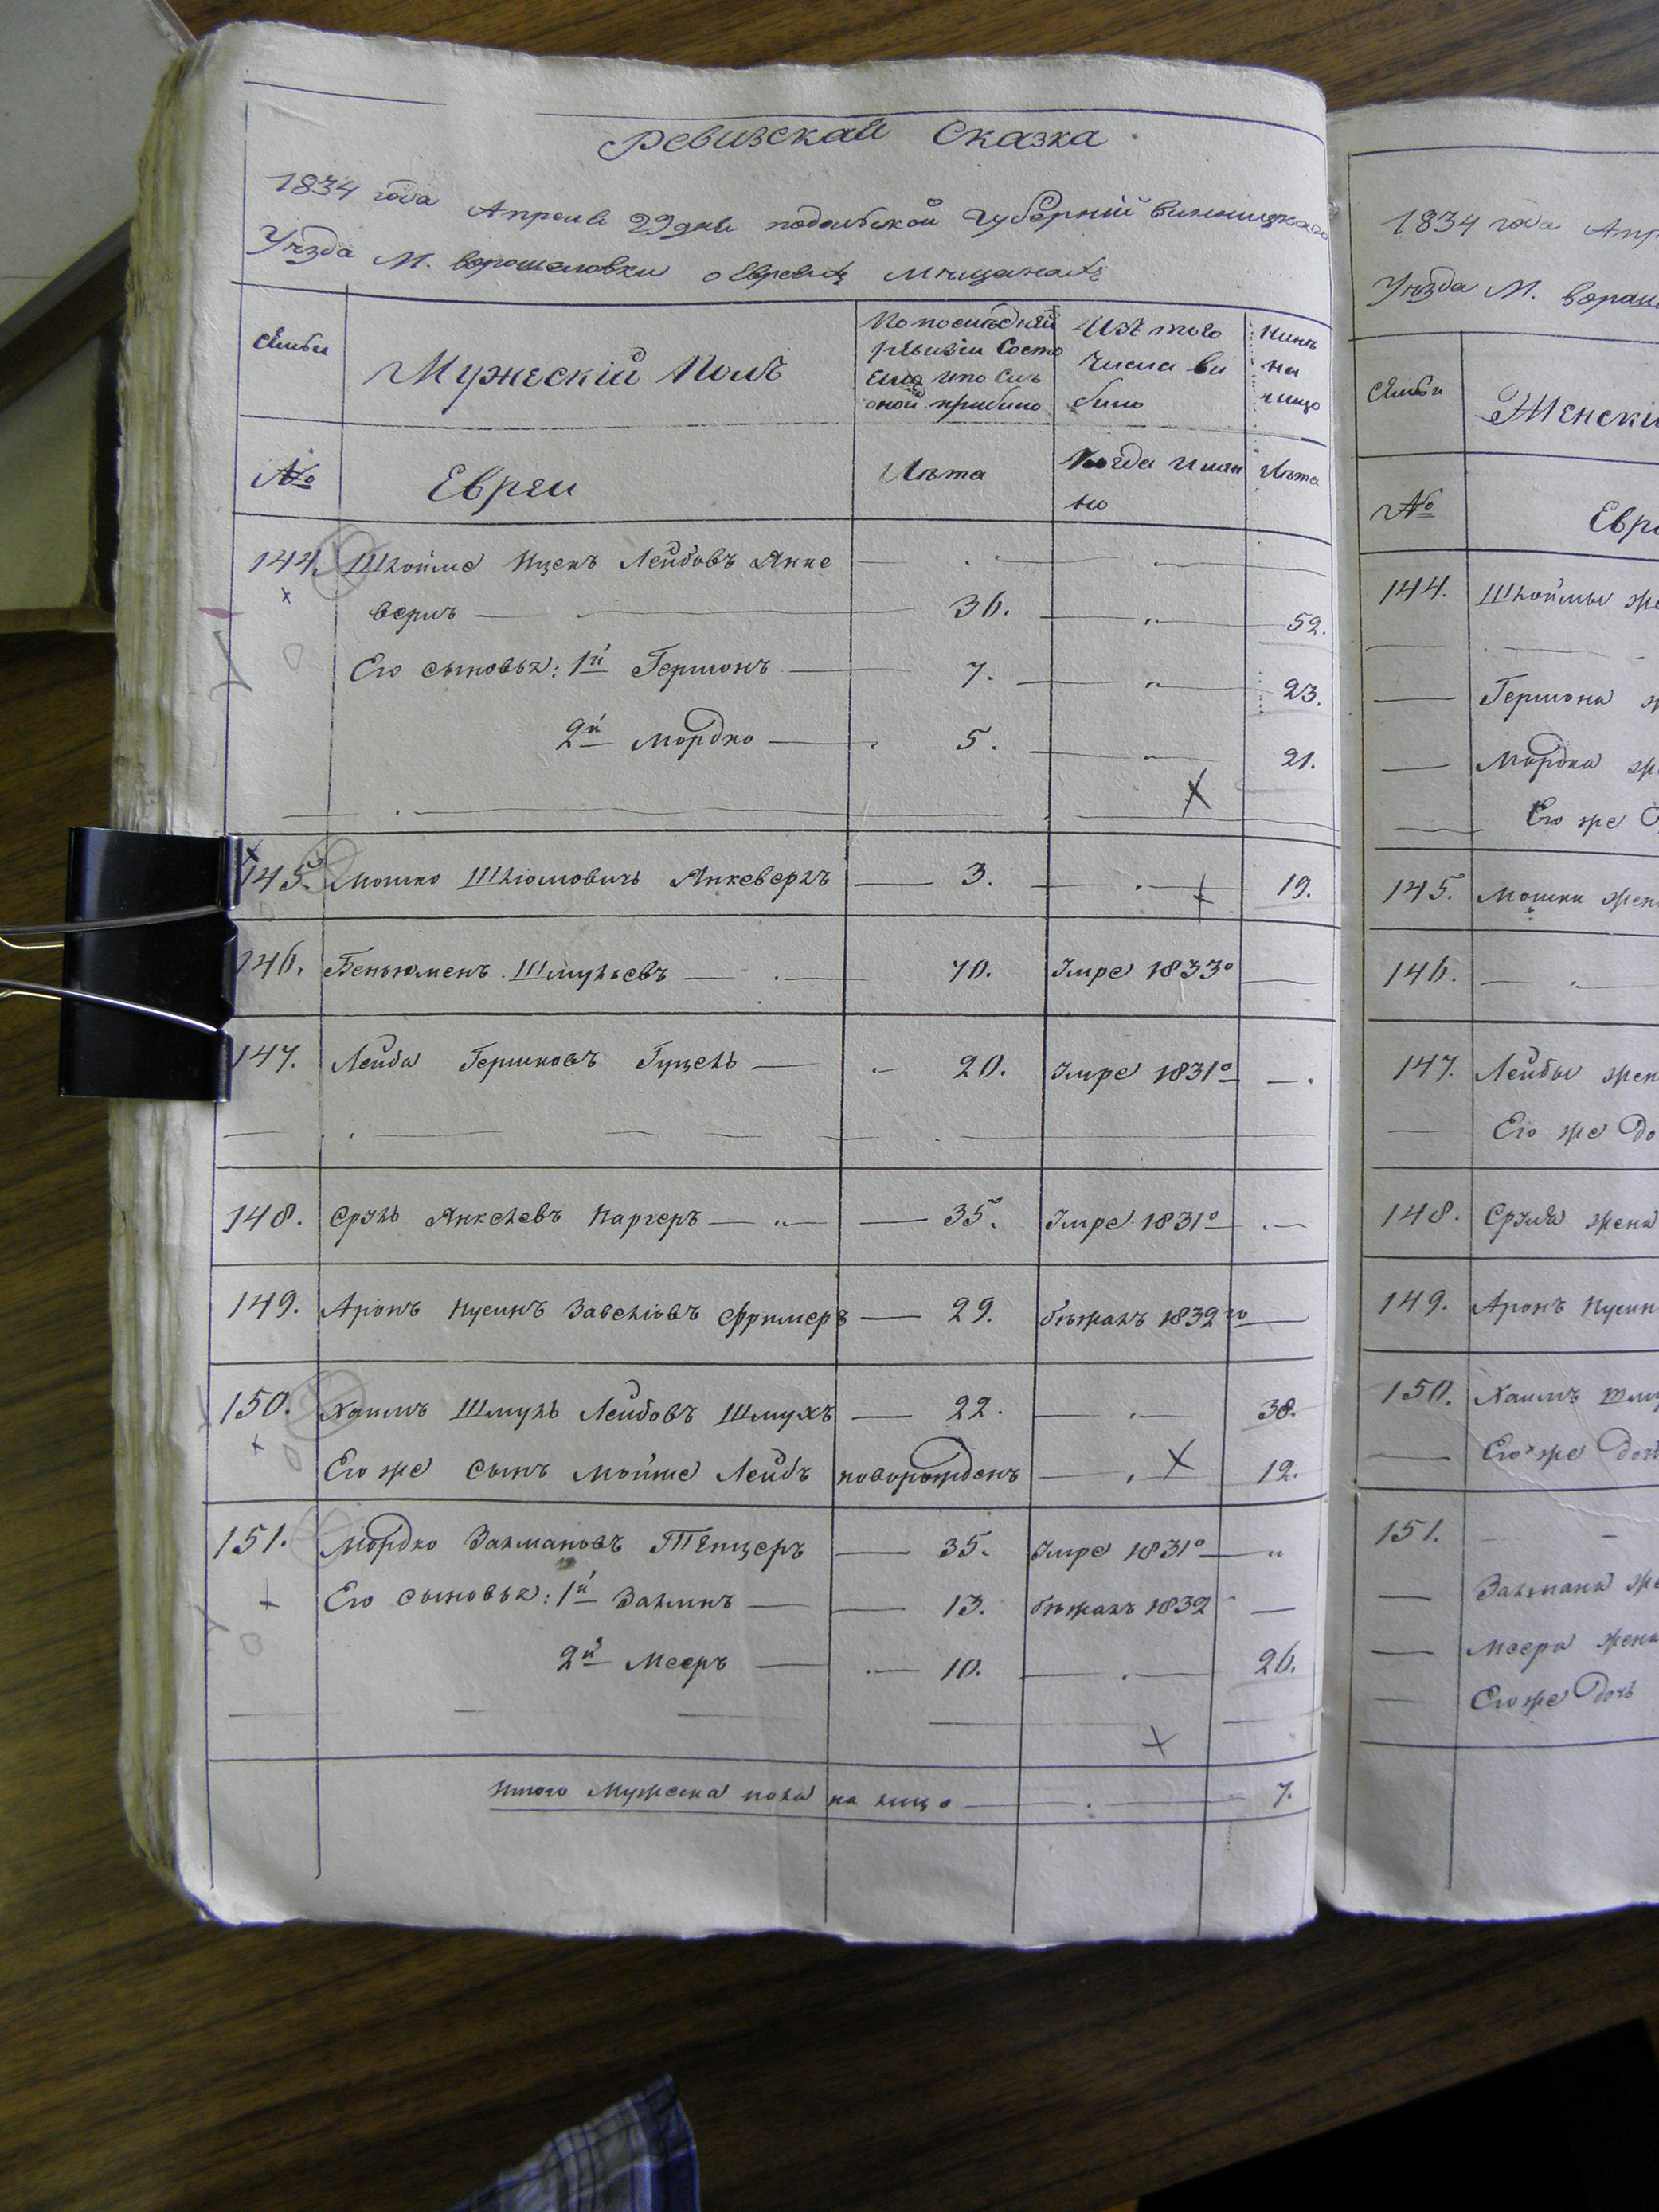 Ревизская Сказка
1834 года Апреля 29 дня подольской Губерніи винницкаго
Уѣзда М. ворошиловки о Евреяхъ Мѣщанахъ
Семьи
Мужескій Полъ
По последней ревизіи Состо
Изъ того числа вы было
Нынѣ на лицо
№
Евреи
Лѣта
Когда имян но
Лѣта
144. Шлойме Ицекъ Лейбовъ Анке
верхъ 36. 52.
Его сыновья: 1й Гершонъ 7. 23.
2й Мордко 5. 21.
145. Мошко Шліомовичь Анкеверхъ 3. 19.
146. Беньюменъ Шмульевъ 70. Умре 1833о
147. Лейба Гершковъ 20. Умре 1831о
148. Сруль Анкелевъ 35. Умре 1831о
149. Аронъ Нусинъ Завеліовъ 29. бѣжалъ 1832го
150. Хаимъ Шмуль Лейбовъ Шмухъ 22. 38.
Его же сынъ Мойше Лейбъ новорожденъ 12.
151. Мордко Залмановъ Тенцеръ 35. Умре 1831о
Его сыновья: 1й Залмнъ 13. бѣжалъ 1832
2й Мееръ 10. 26.
Итого Мужеска пола на лицо 7.
1834 года
Уѣзда М.
Семьи
№
144. Шлоймы
Гершона
Мордка
Его же
145. Мошки
146.
147. Лейбы
Его же
148. Сруля жена
149. Аронъ
150. Хаимъ
Его же
151.
Залмана
Меера жена
Его же дочь